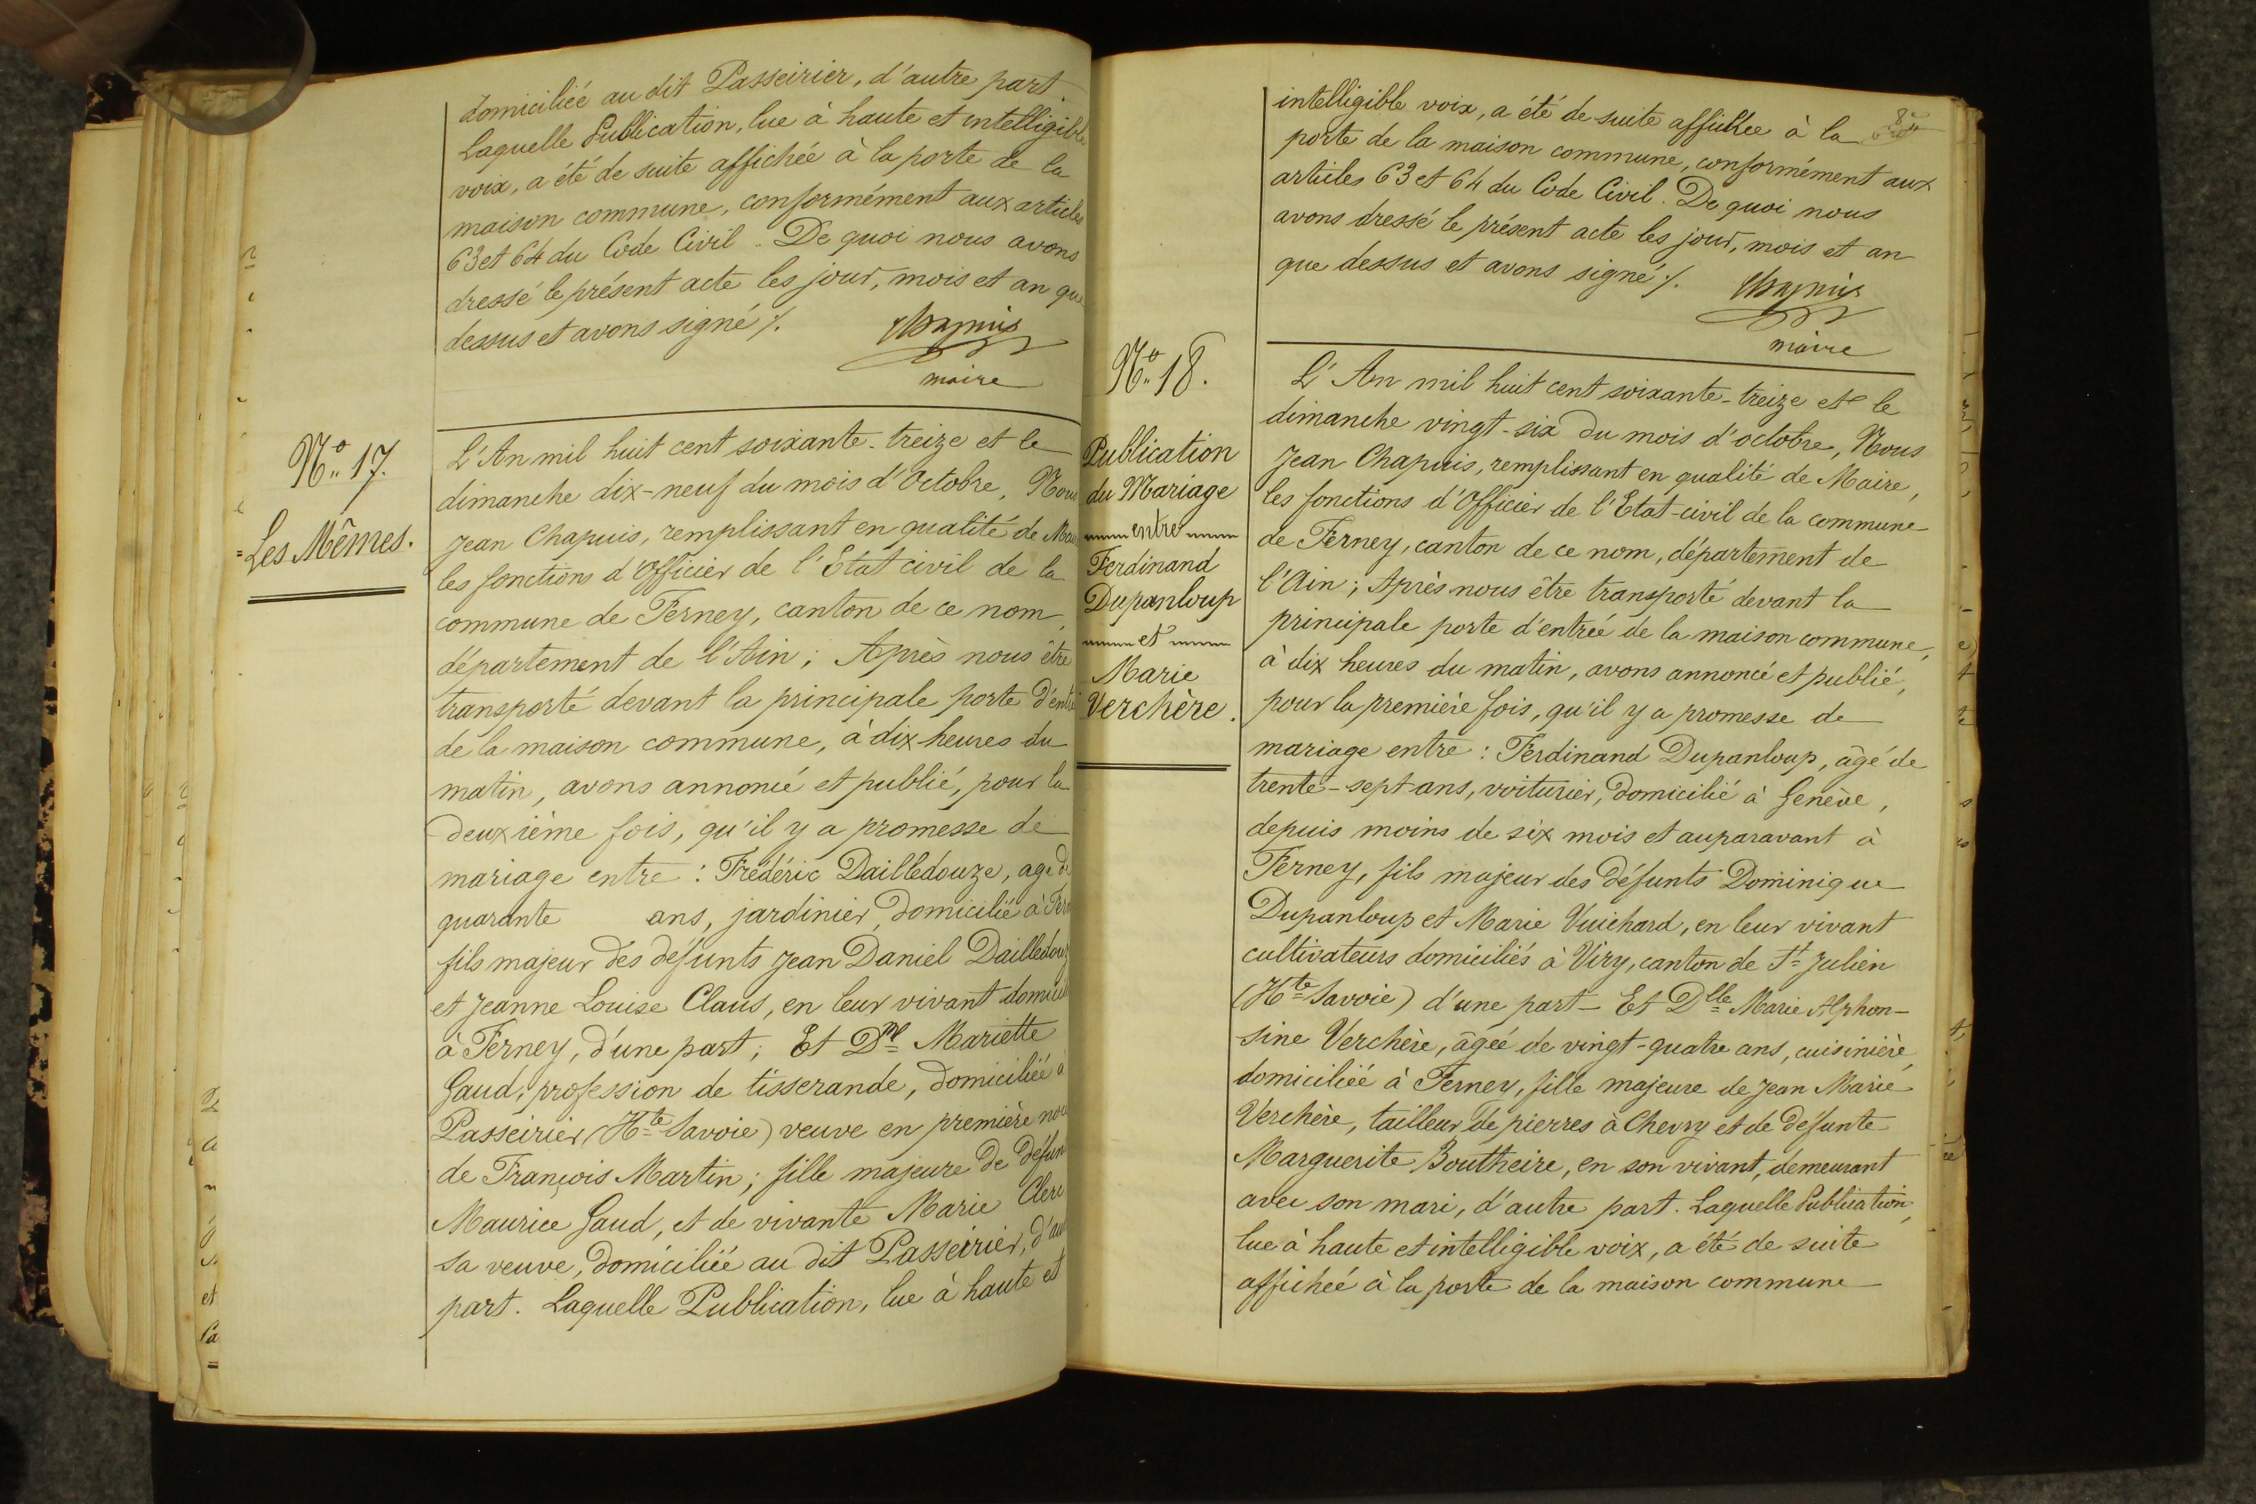 domiciliée au dit Passeirier, d'autre part.
Laquelle Publication, lue à haute et intelligible
voix, a été de suite affichée à la porte de la
maison commune, conformément aux articles
63 et 64 du Code Civil. De quoi nous avons
dressé le présent acte les jour, mois et an que
dessus et avons signé ./.
Chapuis
maire
N° 17.
Les Mêmes.
L'An mil huit cent soixante-treize et le
dimanche dix-neuf du mois d'Octobre, Nous
Jean Chapuis, remplissant en qualité de Mai
les fonctions d'Officier de l'Etat civil de la
commune de Ferney, canton de ce nom,
département de l'Ain; Après nous être
transporté devant la principale porte d'entré
de la maison commune, à dix heures du
matin, avons annoncé et publié, pour la
deuxième fois, qu'il y a promesse de
mariage entre : Frédéric Dailledouze, agé de
quarante ans, jardinier, domicilié à Fer
fils majeur des défunts Jean Daniel Dailledouz
et Jeanne Louise Claus, en leur vivant domicil
à Ferney, d'une part; Et Dme Mariette
Gaud, profession de tisserande, domiciliée à
Passeirier (Hte Savoie) veuve en première noc
de François Martin; fille majeure de défun
Maurice Gaud, et de vivante Marie Clerc
sa veuve, domiciliée au dit Passeirier, d'au
part. Laquelle Publication, lue à haute et
intelligible voix, a été de suite affichée à la
porte de la maison commune, conformément aux
articles 63 et 64 du Code Civil. De quoi nous
avons dressé le présent acte les jour, mois et an
que dessus et avons signé ./.
Chapuis
maire
N° 18.
Publication
du Mariage
entre
Ferdinand
Dupanloup
et
Marie
Verchère.
L'An mil huit cent soixante-treize et le
dimanche vingt-six du mois d'octobre, Nous
Jean Chapuis, remplissant en qualité de Maire,
les fonctions d'Officier de l'Etat-civil de la commune
de Ferney, canton de ce nom, département de
l'Ain; Après nous être transporté devant la
principale porte d'entrée de la maison commune,
à dix heures du matin, avons annoncé et publié,
pour la première fois, qu'il y a promesse de
mariage entre : Ferdinand Dupanloup, âgé de
trente-sept ans, voiturier, domicilié à Genève,
depuis moins de six mois et auparavant à
Ferney, fils majeur des défunts Dominique
Dupanloup et Marie Vuichard, en leur vivant
cultivateurs domiciliés à Viry, canton de St Julien
(Hte Savoie) d'une part - Et Dlle Marie Alphon-
sine Verchère, âgée de vingt-quatre ans, cuisinière,
domiciliée à Ferney, fille majeure de Jean Marie
Verchère, tailleur de pierres à Chevry et de défunte
Marguerite Boutheire, en son vivant, demeurant
avec son mari, d'autre part. Laquelle Publication,
lue à haute et intelligible voix, a été de suite
affichée à la porte de la maison commune